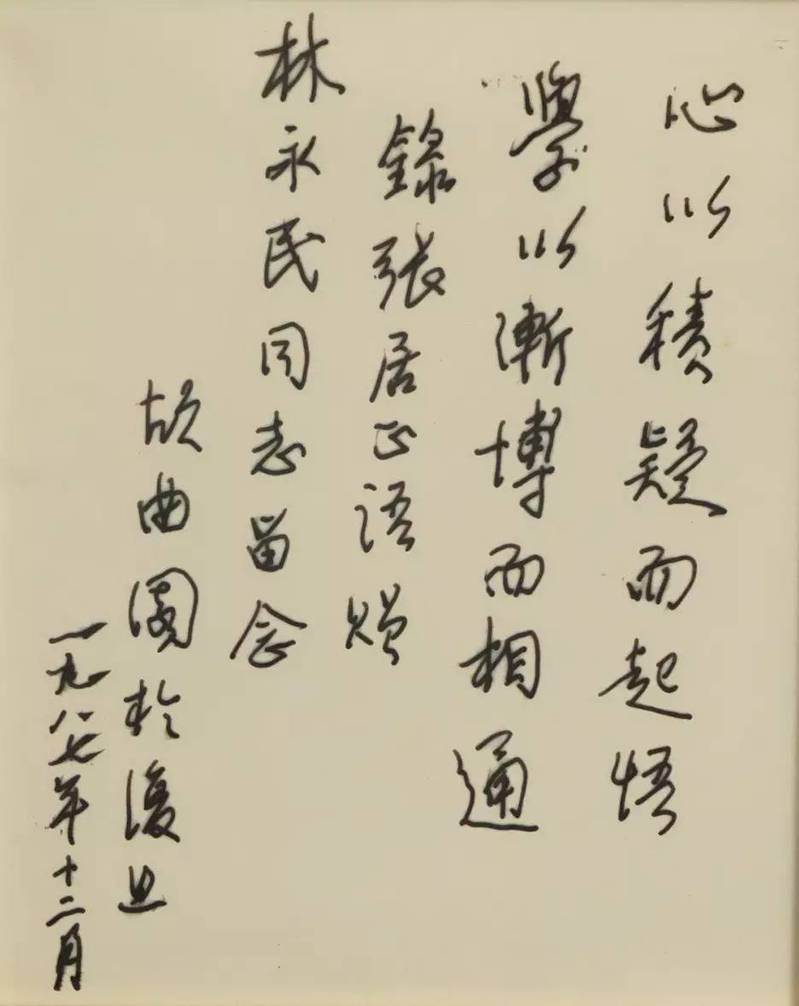 心以積疑而起悟
學以漸博而相通
錄張居正语赠
林永民同志留念
胡曲園於復旦
一九八七年十二月